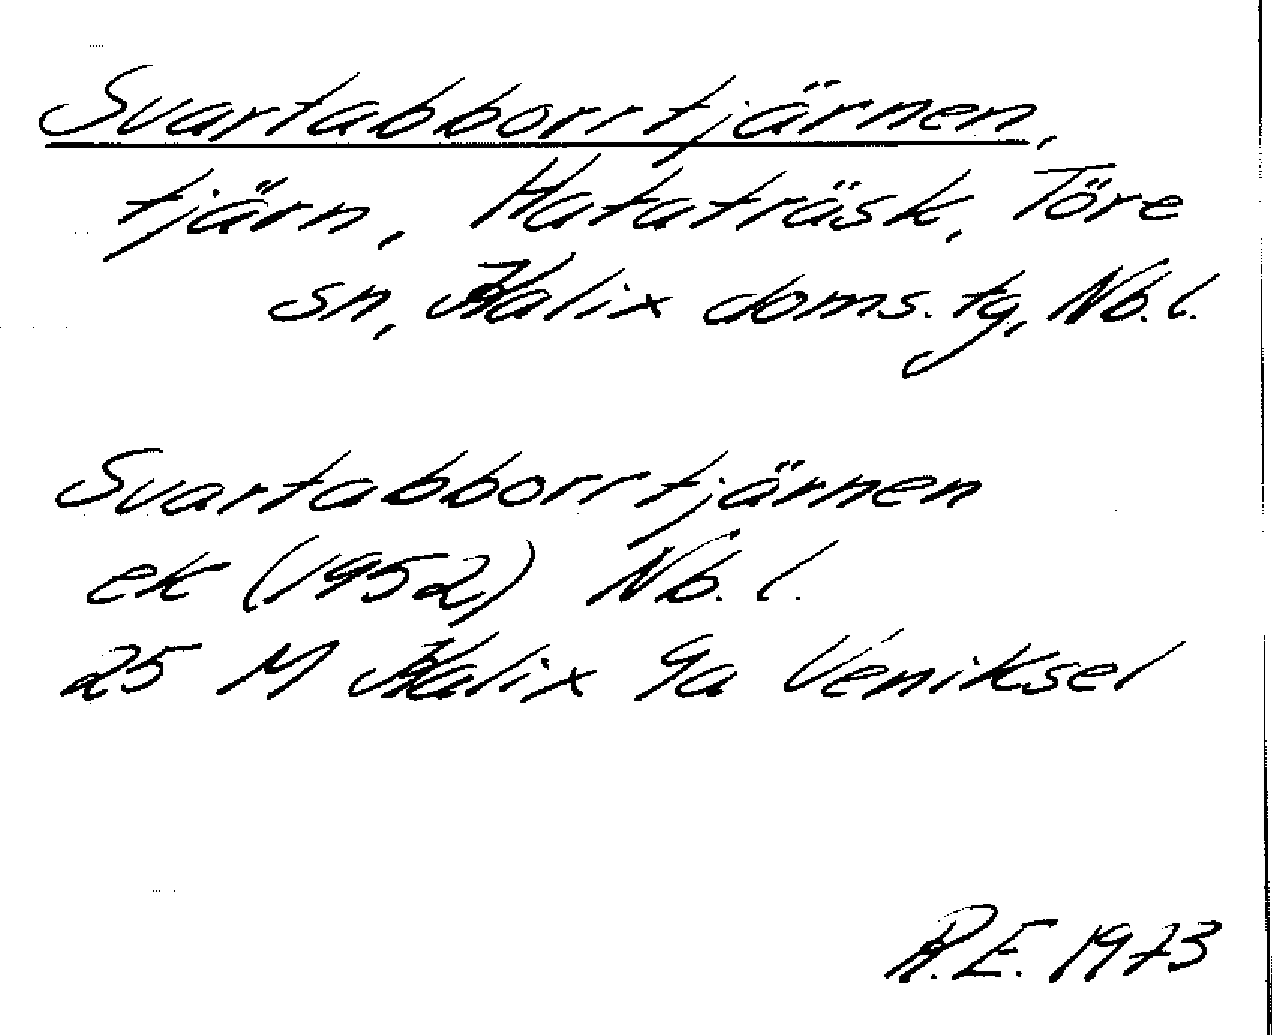 Svartabborrtjärnen,
tjärn, Hataträsk, Töre
sn, Kalix doms. tg, Nb. l.
Svartabborrtjärnen
ek (1952) Nb. l.
25 M Kalix 9a Veniksel
R.E. 1973